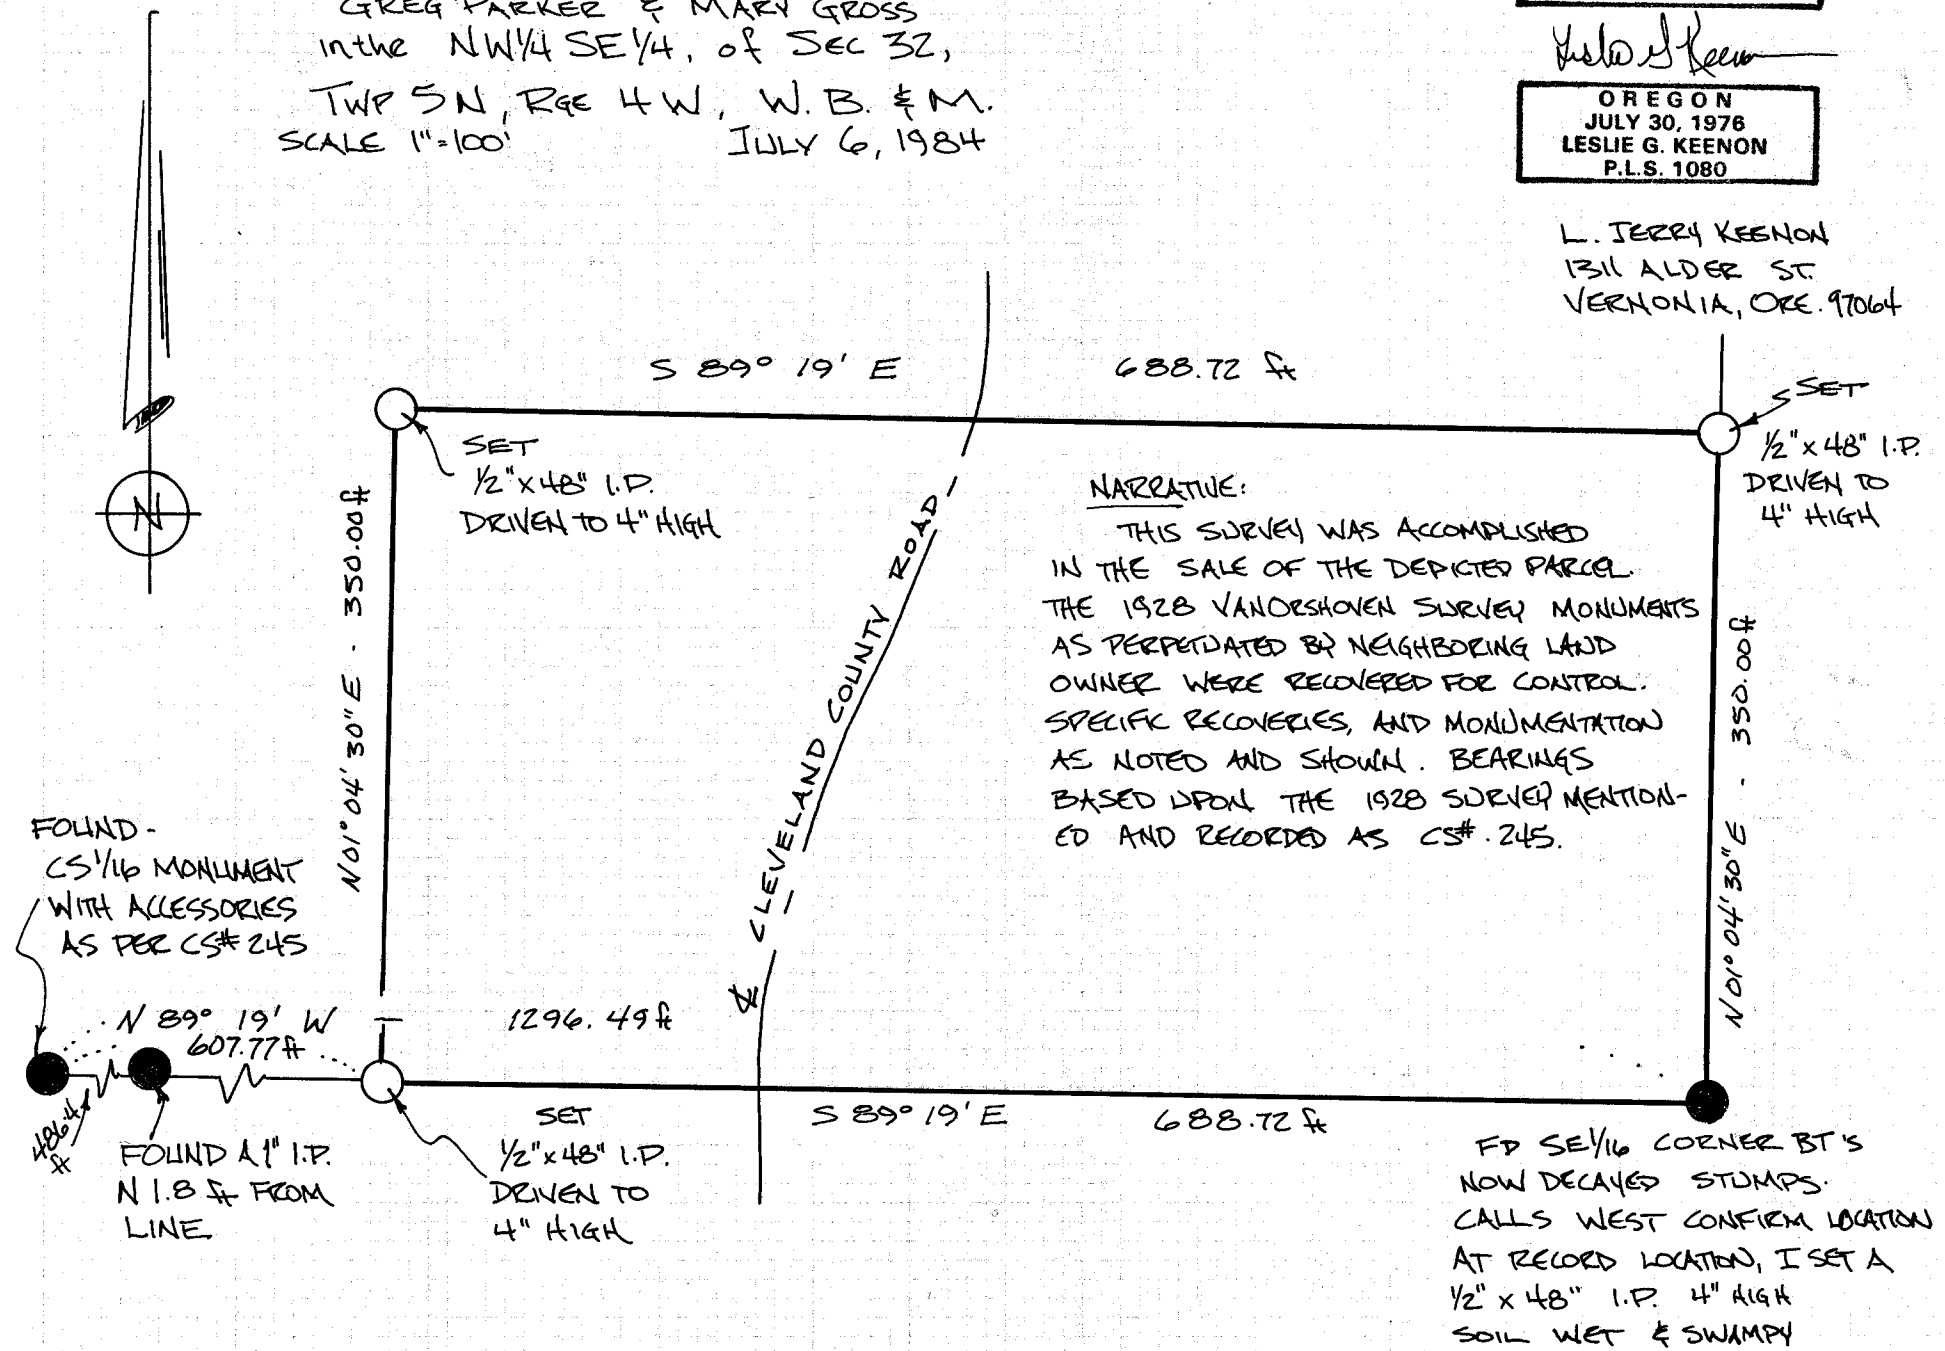 GREG PARKER & MARY GROSS
in the NW1/4 SE1/4, of SEC 32,
TWP 5N, RGE 4W, W.B. & M.
SCALE 1"=100' JULY 6, 1984
OREGON
JULY 30, 1976
LESLIE G. KEENON
P.L.S. 1080
L. JERRY KEENON
1311 ALDER ST.
VERNONIA, ORE. 97064
N
S 89° 19' E 688.72 ft
SET
1/2" x 48" I.P.
DRIVEN TO 4" HIGH
SET
1/2" x 48" I.P.
DRIVEN TO
4" HIGH
N 01° 04' 30" E · 350.00 ft
CLEVELAND COUNTY ROAD
NARRATIVE:
THIS SURVEY WAS ACCOMPLISHED
IN THE SALE OF THE DEPICTED PARCEL.
THE 1928 VANORSHOVEN SURVEY MONUMENTS
AS PERPETUATED BY NEIGHBORING LAND
OWNER WERE RECOVERED FOR CONTROL.
SPECIFIC RECOVERIES, AND MONUMENTATION
AS NOTED AND SHOWN. BEARINGS
BASED UPON THE 1928 SURVEY MENTION-
ED AND RECORDED AS CS# 245.
N 01° 04' 30" E - 350.00 ft
FOUND -
CS 1/16 MONUMENT
WITH ACCESSORIES
AS PER CS# 245
N 89° 19' W 1296.49 ft
607.77 ft
486.4
ft
FOUND A 1" I.P.
N 1.8 ft FROM
LINE
SET
1/2" x 48" I.P.
DRIVEN TO
4" HIGH
℄
S 89° 19' E 688.72 ft
FD SE1/16 CORNER BT'S
NOW DECAYED STUMPS.
CALLS WEST CONFIRM LOCATION
AT RECORD LOCATION, I SET A
1/2" x 48" I.P. 4" HIGH
SOIL WET & SWAMPY